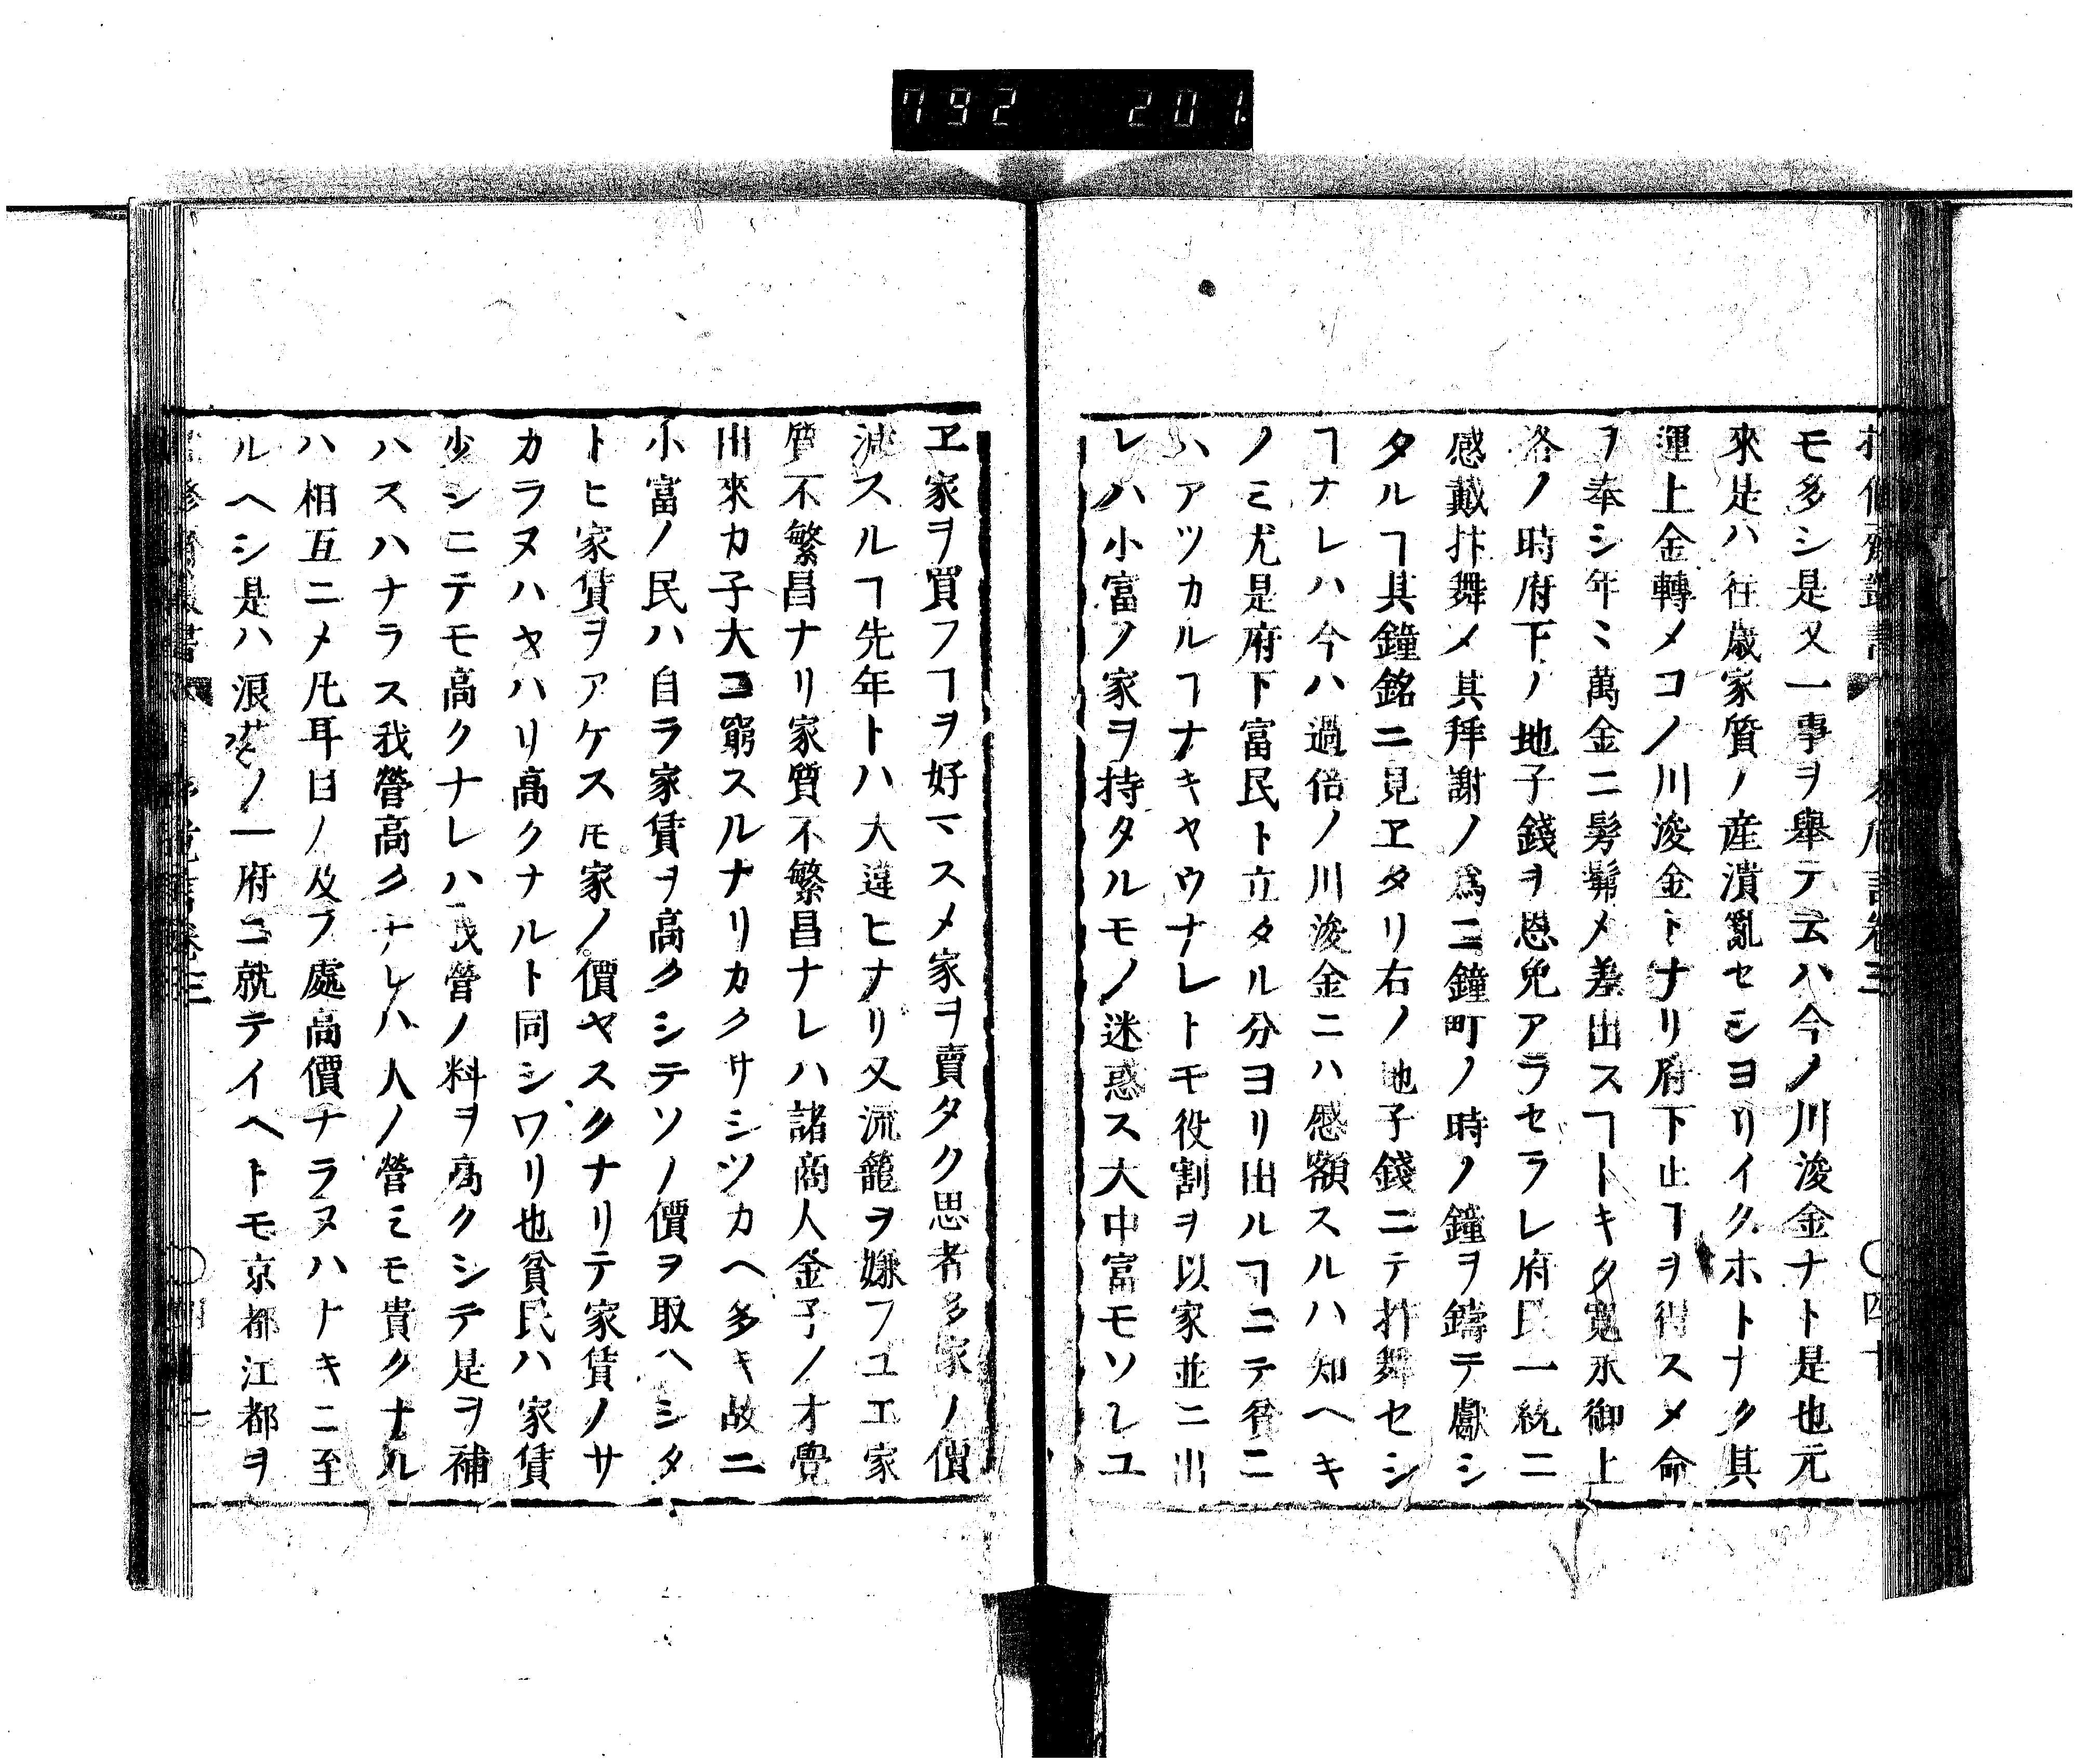 792 201
モ多シ是又一事ヲ舉テ云ハ今ノ川浚金ナト是也元
來是ハ往歳家質ノ産潰亂セシヨリイクホトナク其
運上金轉メコノ川浚金トナリ府下止ヿヲ得スメ命
ヲ奉シ年ミ萬金ニ髣髴メ差出スヿトキク寬永御上
洛ノ時府下ノ地子錢ヲ恩免アラセラレ府民一統ニ
感戴抃舞メ其拜謝ノ爲ニ鐘町ノ時ノ鐘ヲ鑄テ獻シ
タルヿ其鐘銘ニ見ヱタリ右ノ地子錢ニテ抃舞セシ
ヿナレハ今ハ過倍ノ川浚金ニハ感額スルハ知ヘキ
ノミ尤是府下富民ト立タル分ヨリ出ルヿニテ貧ニ
ハアツカルヿナキヤウナレトモ役割ヲ以家並ニ出
レハ小富ノ家ヲ持タルモノ迷惑ス大中富モソレユ
ヱ家ヲ買フヿヲ好マスメ家ヲ賣タク思者多家ノ價
減スルヿ先年トハ大違ヒナリ又流籠ヲ嫌フユエ家
質不繁昌ナリ家質不繁昌ナレハ諸商人金子ノ才覺
出來カ子大コ窮スルナリカクサシツカヘ多キ故ニ
小富ノ民ハ自ラ家賃ヲ高クシテソノ價ヲ取ヘシタ
トヒ家賃ヲアケスモ家ノ價ヤスクナリテ家賃ノサ
カラヌハヤハリ高クナルト同シワリ也貧民ハ家賃
少シニテモ高クナレハ我營ノ料ヲ高クシテ是ヲ補
ハスハナラス我營高クナレハ人ノ營ミモ貴クナル
ハ相互ニメ凡耳目ノ及フ處高價ナラヌハナキニ至
ルヘシ是ハ浪芲ノ一府ニ就テイヘトモ京都江都ヲ